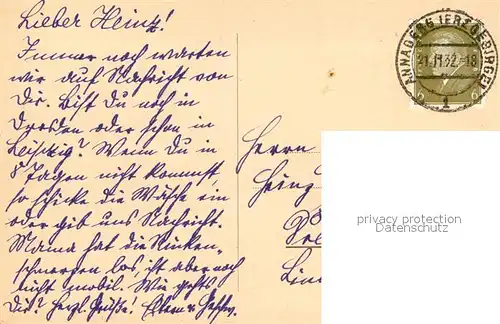 Lieber Heinz!
Immer noch warten
wir auf Nachricht von
Dir. Bist Du noch in
Dresden oder schon in
Leipzig? Wenn Du in
8 Tagen nicht kommst,
so schicke die Wäsche ein
oder gib uns Nachricht.
Mama hat die Rücken-
schmerzen los, ist aber noch
nicht mobil. Wie gehts
Dir? Herzl. Grüße! Eltern u. Geschw.
ANNABERG (ERZGEBIRGE)
21.11.32.-18
Herrn
Heinz
privacy protection
Datenschutz